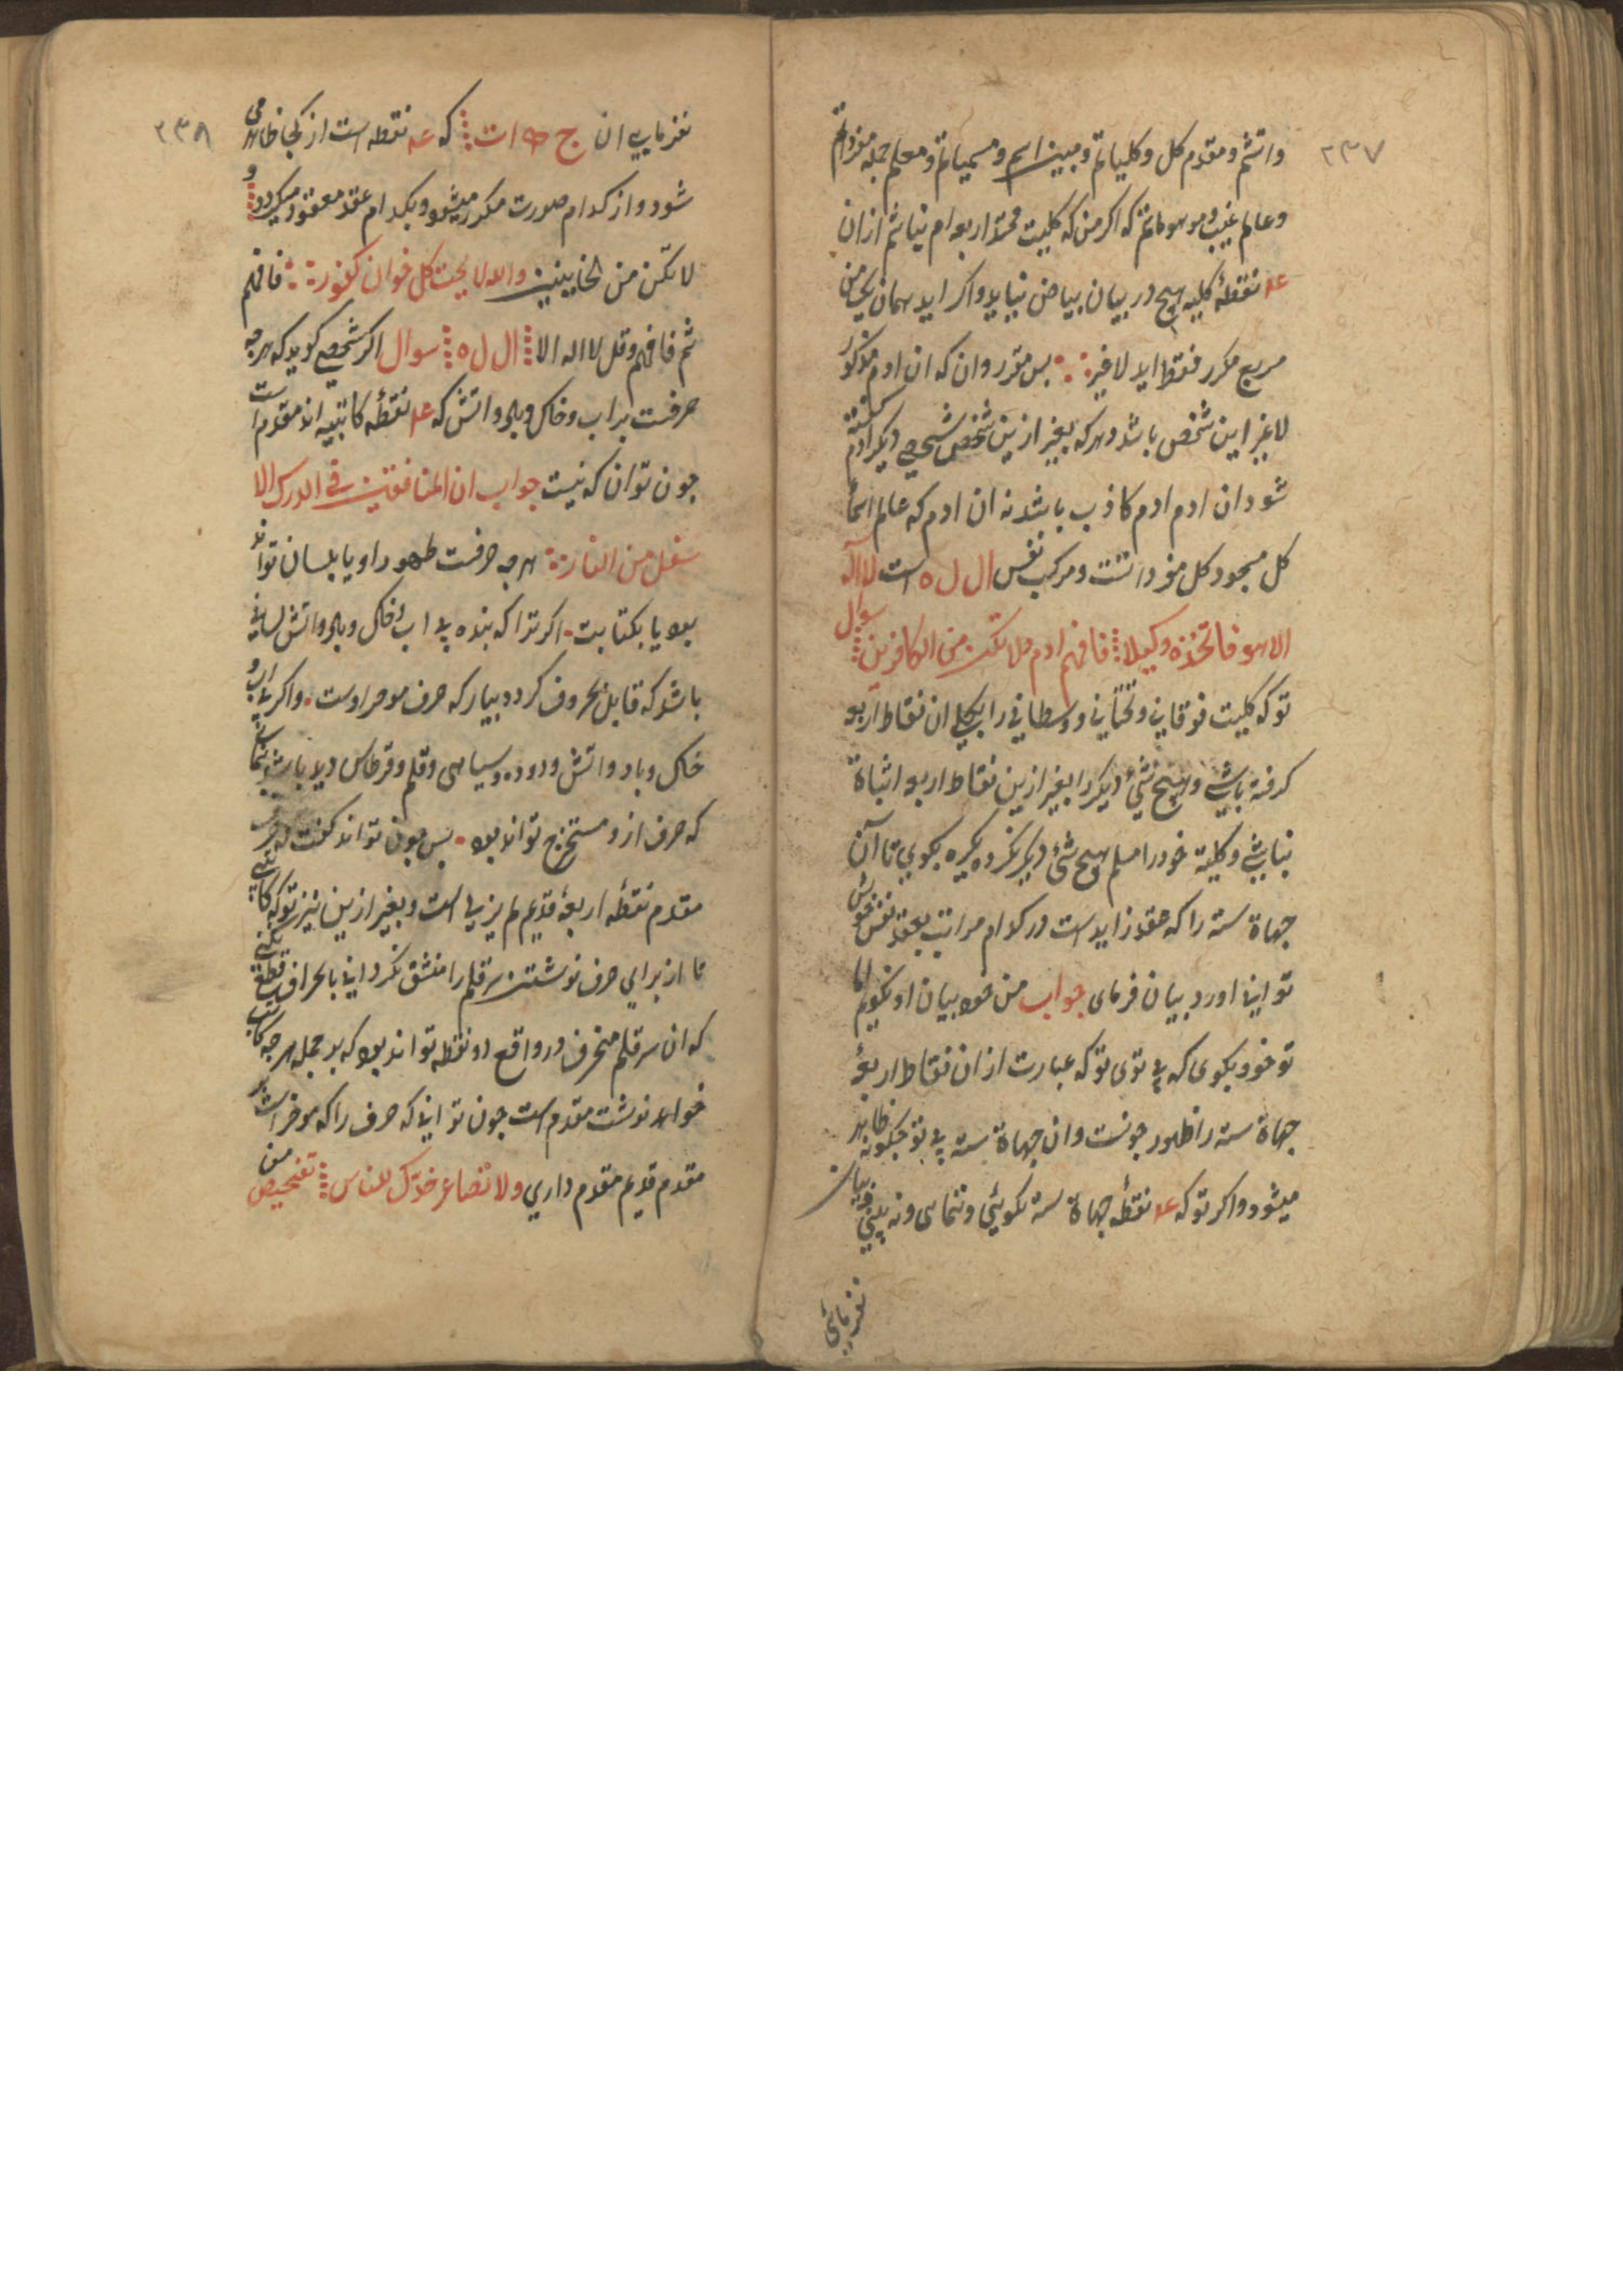 ۲۳۷
واتشم و مقدم کل و کلیاتم و مبین اسم و مسمیاتم و معلم جمله مفرداتم
وعالم غیب و موهوماتم که اکر من که کلیت محمد اربعه ام نباشم ازان
نقطهٔ کلیه هیچ در بیان بیاض نیاید واکر اید همان یک من
مربع مکرر فقط اید لا غیر پس مقرر دان که ان ادم مذکور
لا غیر این شخص باشد و هرکه بغیر ازین شخص شخصی دیکر ادم کفته
شود ان ادم ادم کاذب باشد نه ان ادم که عالم اسماء
کل مسجود کل مفرداتست و مرکب نفس ال ل ه است لا اله
الا هو فاتخذه وکیلا فافهم ادم ولا تکن من الکافرین سوال
تو که کلیت فوقانی و تحتانی و وسطانی را بکل ان نقاط اربعه
کرفته باشی و هیچ شیٔ دیکر را بغیر ازین نقاط اربعه اثباة
نباشی و کلیة خود را مسلم هیچ شیٔ دیکر نکرده یکیره بکوی تا آن
جهاة سته را که عقد زاید است در کدام مراتب بعقد نفس خویش
توانی اورد بیان فرمای جواب من خود بیان او نکویم اما
تو خود بکوی که بی توی تو که عبارت از ان نقاط اربعهٔ
جهاة سته را ظهور چونست و ان جهاة سته بی تو چکونه ظاهر
میشود و اکر تو که نقطه جهاة سته نکوئی و ننمای و نه بینی و بیان
نفرمائی
۲۳۸
نفرمایی ان ج ه ات که نقطه است از کجا ظاهر می
شود و از کدام صورت مکرر میشود و بکدام عقد معقود میکردد و
لا تکن من الخاینین والله لا یحب کل خوان کفور فافهم
ثم فافهم و قل لا اله الا ال ل ه سوال اکر شخصی کوید که هرچه
حرفست بر اب و خاک و باد و اتش که نقطهٔ کاتبیه اند مقدم است
چون توان که نیست جواب ان المنافقین فی الدرک الا
سفل من النار هرچه حرفست ظهور او یا بلسان تواند
بود یا بکتابت اکر ترا که بنده بی اب و خاک و باد و اتش لسانی
باشد که قابل حروف کردد بیار که حرف موخر اوست واکر بی اب و
خاک و باد و اتش و دوده و سیاهی و قلم و قرطاس و ید باشد کتابتی
که حرف ازو مستخرج تواند بود پس چون تواند کفت که حرف
مقدم نقطه اربعهٔ قدیم لم یزلی است و بغیر ازین نیز تو که کاتبی
تا از برای حرف نوشتن سر قلم را منشق نکردانی بانحراف قطع نکنی
که ان سر قلم منحرف در واقع دو نقطه تواند بود که بر جمله هرچه کاتب
خواهد نوشت مقدم است چون توانی که حرف را که موخر است بر
مقدم قدیم مقدم داری ولا تصاعر خدّک للناس تفحیص من